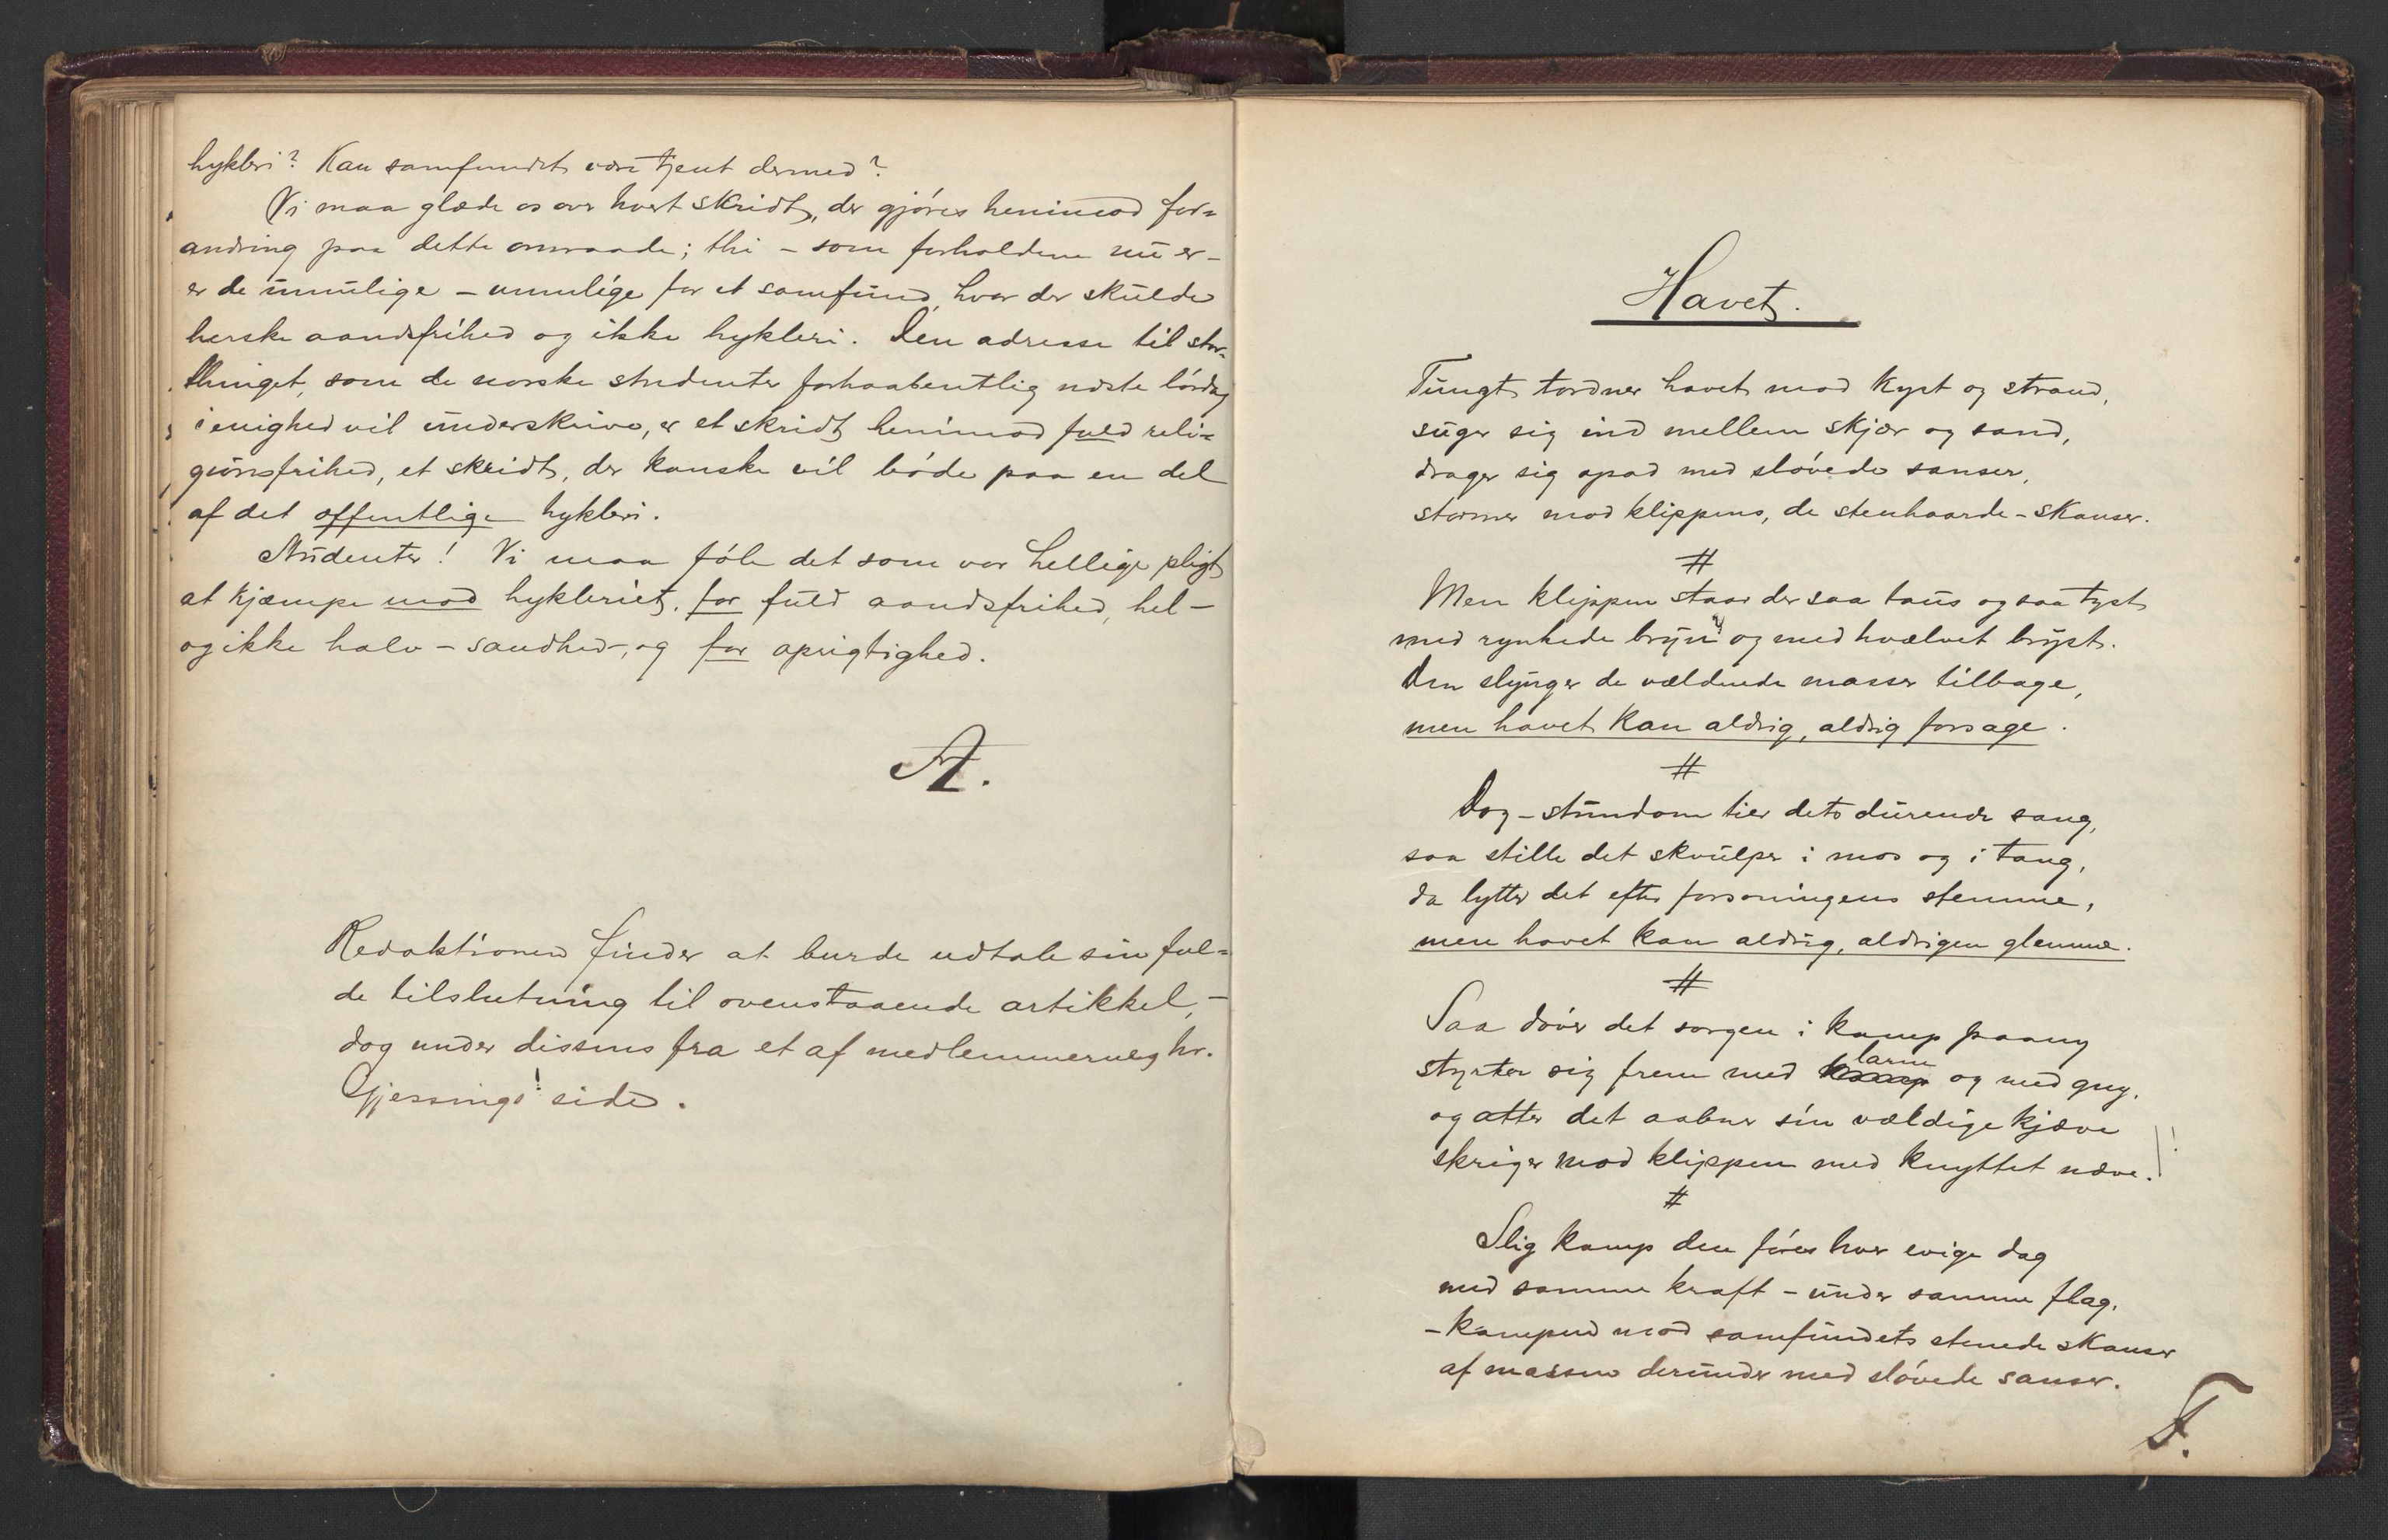 hykleri? Kan samfundet være tjent dermed?
Vi maa glæde os over hvert skridt, der gjöres henimod for=
andring paa dette omraade; thi – som forholdene nu er –
er de umulige – umulige for et samfund, hvor der skulde
herske aandsfrihed og ikke hykleri. Den adresse til stor=
thinget, som de norske studenter forhaabentlig næste lördag
i enighed vil underskrive, er et skridt henimod fuld reli=
gionsfrihed, et skridt, der kanske vil böde paa en del
af det offentlige hykleri.
Studenter! Vi maa föle det som vor hellige pligt
at kjæmpe mod hykleriet, for fuld aandsfrihed, hel –
og ikke halv – sandhed –, og for oprigtighed.
A.
Redaktionen finder at burde udtale sin ful=
de tilslutning til ovenstaaende artikkel, –
dog under dissens fra et af medlemmernes, hr.
Gjessings! side.
Havet.
Tungt tordner havet mod kyst og strand,
suger sig ind mellem skjær og sand,
drager sig opad med slövede sanser,
stormer mod klippens, de stenhaarde – skanser.
#
Men klippen staar der saa taus og saa tyst
med rynkede bryn og med hvælvet bryst.
Den slynger de vældende masser tilbage,
men havet kan aldrig, aldrig forsage.
#
Dog – stundom tier dets durende sang,
saa stille det skvulper i mos og i tang,
da lytter det efter forsoningens stemme,
men havet kan aldrig, aldrigen glemme.
#
Saa döver det sorgen i kamp paany
styrter sig frem med larm og med gny,
og atter det aabner sin vældige kjæve
skriger mod klippen med knyttet næve.!
#
Slig kamp den föres hver evige dag
med samme kraft – under samme flag,
– kampen mod samfundets stenede skanser
af massen derunder med slövede sanser.
F.